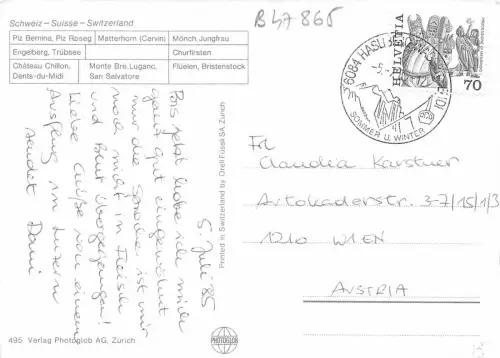 Schweiz – Suisse – Switzerland
Piz Bernina, Piz Roseg
Matterhorn (Cervin)
Mönch, Jungfrau
Engelberg, Trübsee
Churfirsten
Château Chillon, Dents-du-Midi
Monte Brè, Lugano, San Salvatore
Flüelen, Bristenstock
B 47 865
6084 HASLIBERG
SOMMER U. WINTER
HELVETIA
70
5. Juli 85
Bis jetzt habe ich mich
ganz gut eingewöhnt
nur die Sprache ist mir
noch nicht in Fleisch
und Blut übergegangen!
Liebe Grüße von einem
Ausflug in Luzern
sendet Dani
Printed in Switzerland by Orell Füssli SA, Zürich
Frl
Claudia Karstner
Artokaderstr. 3-7/15/1/3
1210 WIEN
AUSTRIA
495 Verlag Photoglob AG, Zürich
PHOTOGLOB